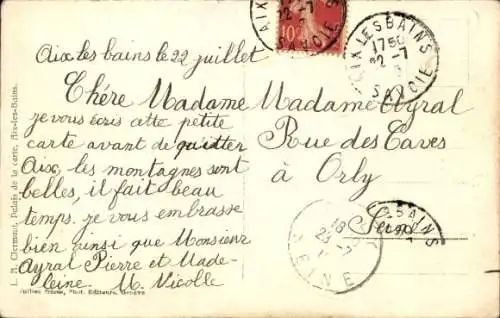 Aix les bains le 22 juillet
Chére Madame
je vous écris cette petite
carte avant de quitter
Aix, les montagnes sont
belles, il fait beau
temps. je vous embrasse
bien ainsi que Monsieur
Ayral Pierre et Made-
leine. M. Nicolle
Madame Ayral
Rue des Caves
à Orly
Seine
AIX
22-7
SAVOIE
10
AIX LES BAINS
1750
22-7
SAVOIE
BAINS
18
23-7
SEINE
L. R. Clermont, Relais de la carte, Aix-les-Bains.
Jullien frères, Phot. Editeurs, Genève